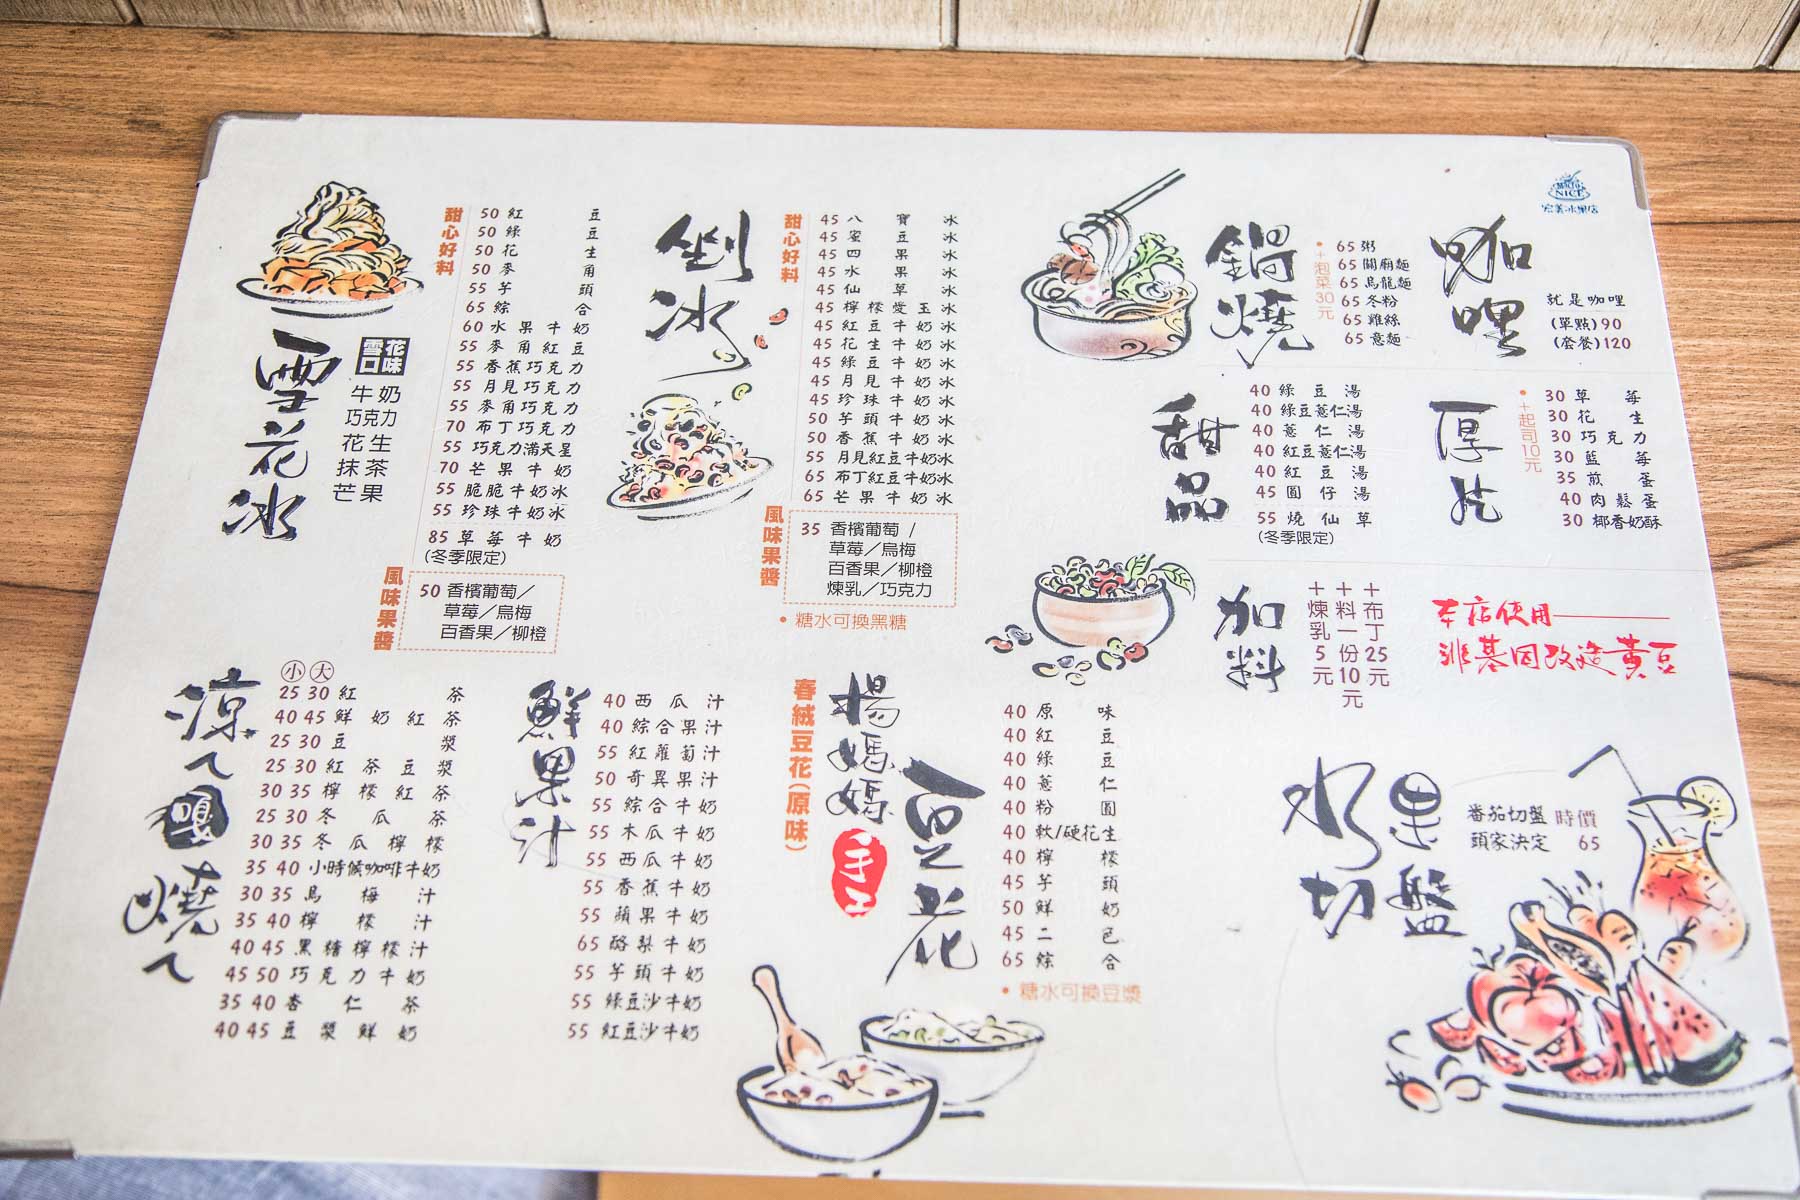 雪花冰
雪花口味
牛奶
巧克力
花生
抹茶
芒果
甜心好料
50 紅豆
50 綠豆
50 花生
50 麥角
55 芋頭
65 綜合
60 水果牛奶
55 麥角紅豆
55 香蕉巧克力
55 月見巧克力
55 麥角巧克力
70 布丁巧克力
55 巧克力滿天星
70 芒果牛奶
55 脆脆牛奶冰
55 珍珠牛奶冰
85 草莓牛奶
(冬季限定)
風味果醬
50 香檳葡萄／
草莓／烏梅
百香果／柳橙
剉冰
甜心好料
45 八寶冰
45 蜜豆冰
45 四果冰
45 水果冰
45 仙草冰
45 檸檬愛玉冰
45 紅豆牛奶冰
45 花生牛奶冰
45 綠豆牛奶冰
45 月見牛奶冰
45 珍珠牛奶冰
50 芋頭牛奶冰
50 香蕉牛奶冰
55 月見紅豆牛奶冰
65 布丁紅豆牛奶冰
65 芒果牛奶冰
風味果醬
35 香檳葡萄／
草莓／烏梅
百香果／柳橙
煉乳／巧克力
• 糖水可換黑糖
鍋燒
• +泡菜30元
65 粥
65 關廟麵
65 烏龍麵
65 冬粉
65 雞絲
65 意麵
咖哩
就是咖哩
(單點)90
(套餐)120
NICE
宏美冰果店
甜品
40 綠豆湯
40 綠豆薏仁湯
40 薏仁湯
40 紅豆薏仁湯
40 紅豆湯
45 圓仔湯
55 燒仙草
(冬季限定)
厚片
• +起司10元
30 草莓
30 花生
30 巧克力
30 藍莓
35 煎蛋
40 肉鬆蛋
30 椰香奶酥
加料
＋布丁25元
＋料一份10元
＋煉乳5元
本店使用
非基因改造黃豆
涼ㄟ嘎燒ㄟ
小 大
25 30 紅茶
40 45 鮮奶紅茶
25 30 豆漿
25 30 紅茶豆漿
30 35 檸檬紅茶
25 30 冬瓜茶
30 35 冬瓜檸檬
35 40 小時候咖啡牛奶
30 35 烏梅汁
35 40 檸檬汁
40 45 黑糖檸檬汁
45 50 巧克力牛奶
35 40 杏仁茶
40 45 豆漿鮮奶
鮮果汁
40 西瓜汁
40 綜合果汁
55 紅蘿蔔汁
50 奇異果汁
55 綜合牛奶
55 木瓜牛奶
55 西瓜牛奶
55 香蕉牛奶
55 蘋果牛奶
65 酪梨牛奶
55 芋頭牛奶
55 綠豆沙牛奶
55 紅豆沙牛奶
春絨豆花(原味)
楊媽媽
手工
豆花
40 原味
40 紅豆
40 綠豆
40 薏仁
40 粉圓
40 軟/硬花生
40 檸檬
45 芋頭
50 鮮奶
45 二色
65 綜合
• 糖水可換豆漿
水果切盤
番茄切盤 時價
頭家決定 65